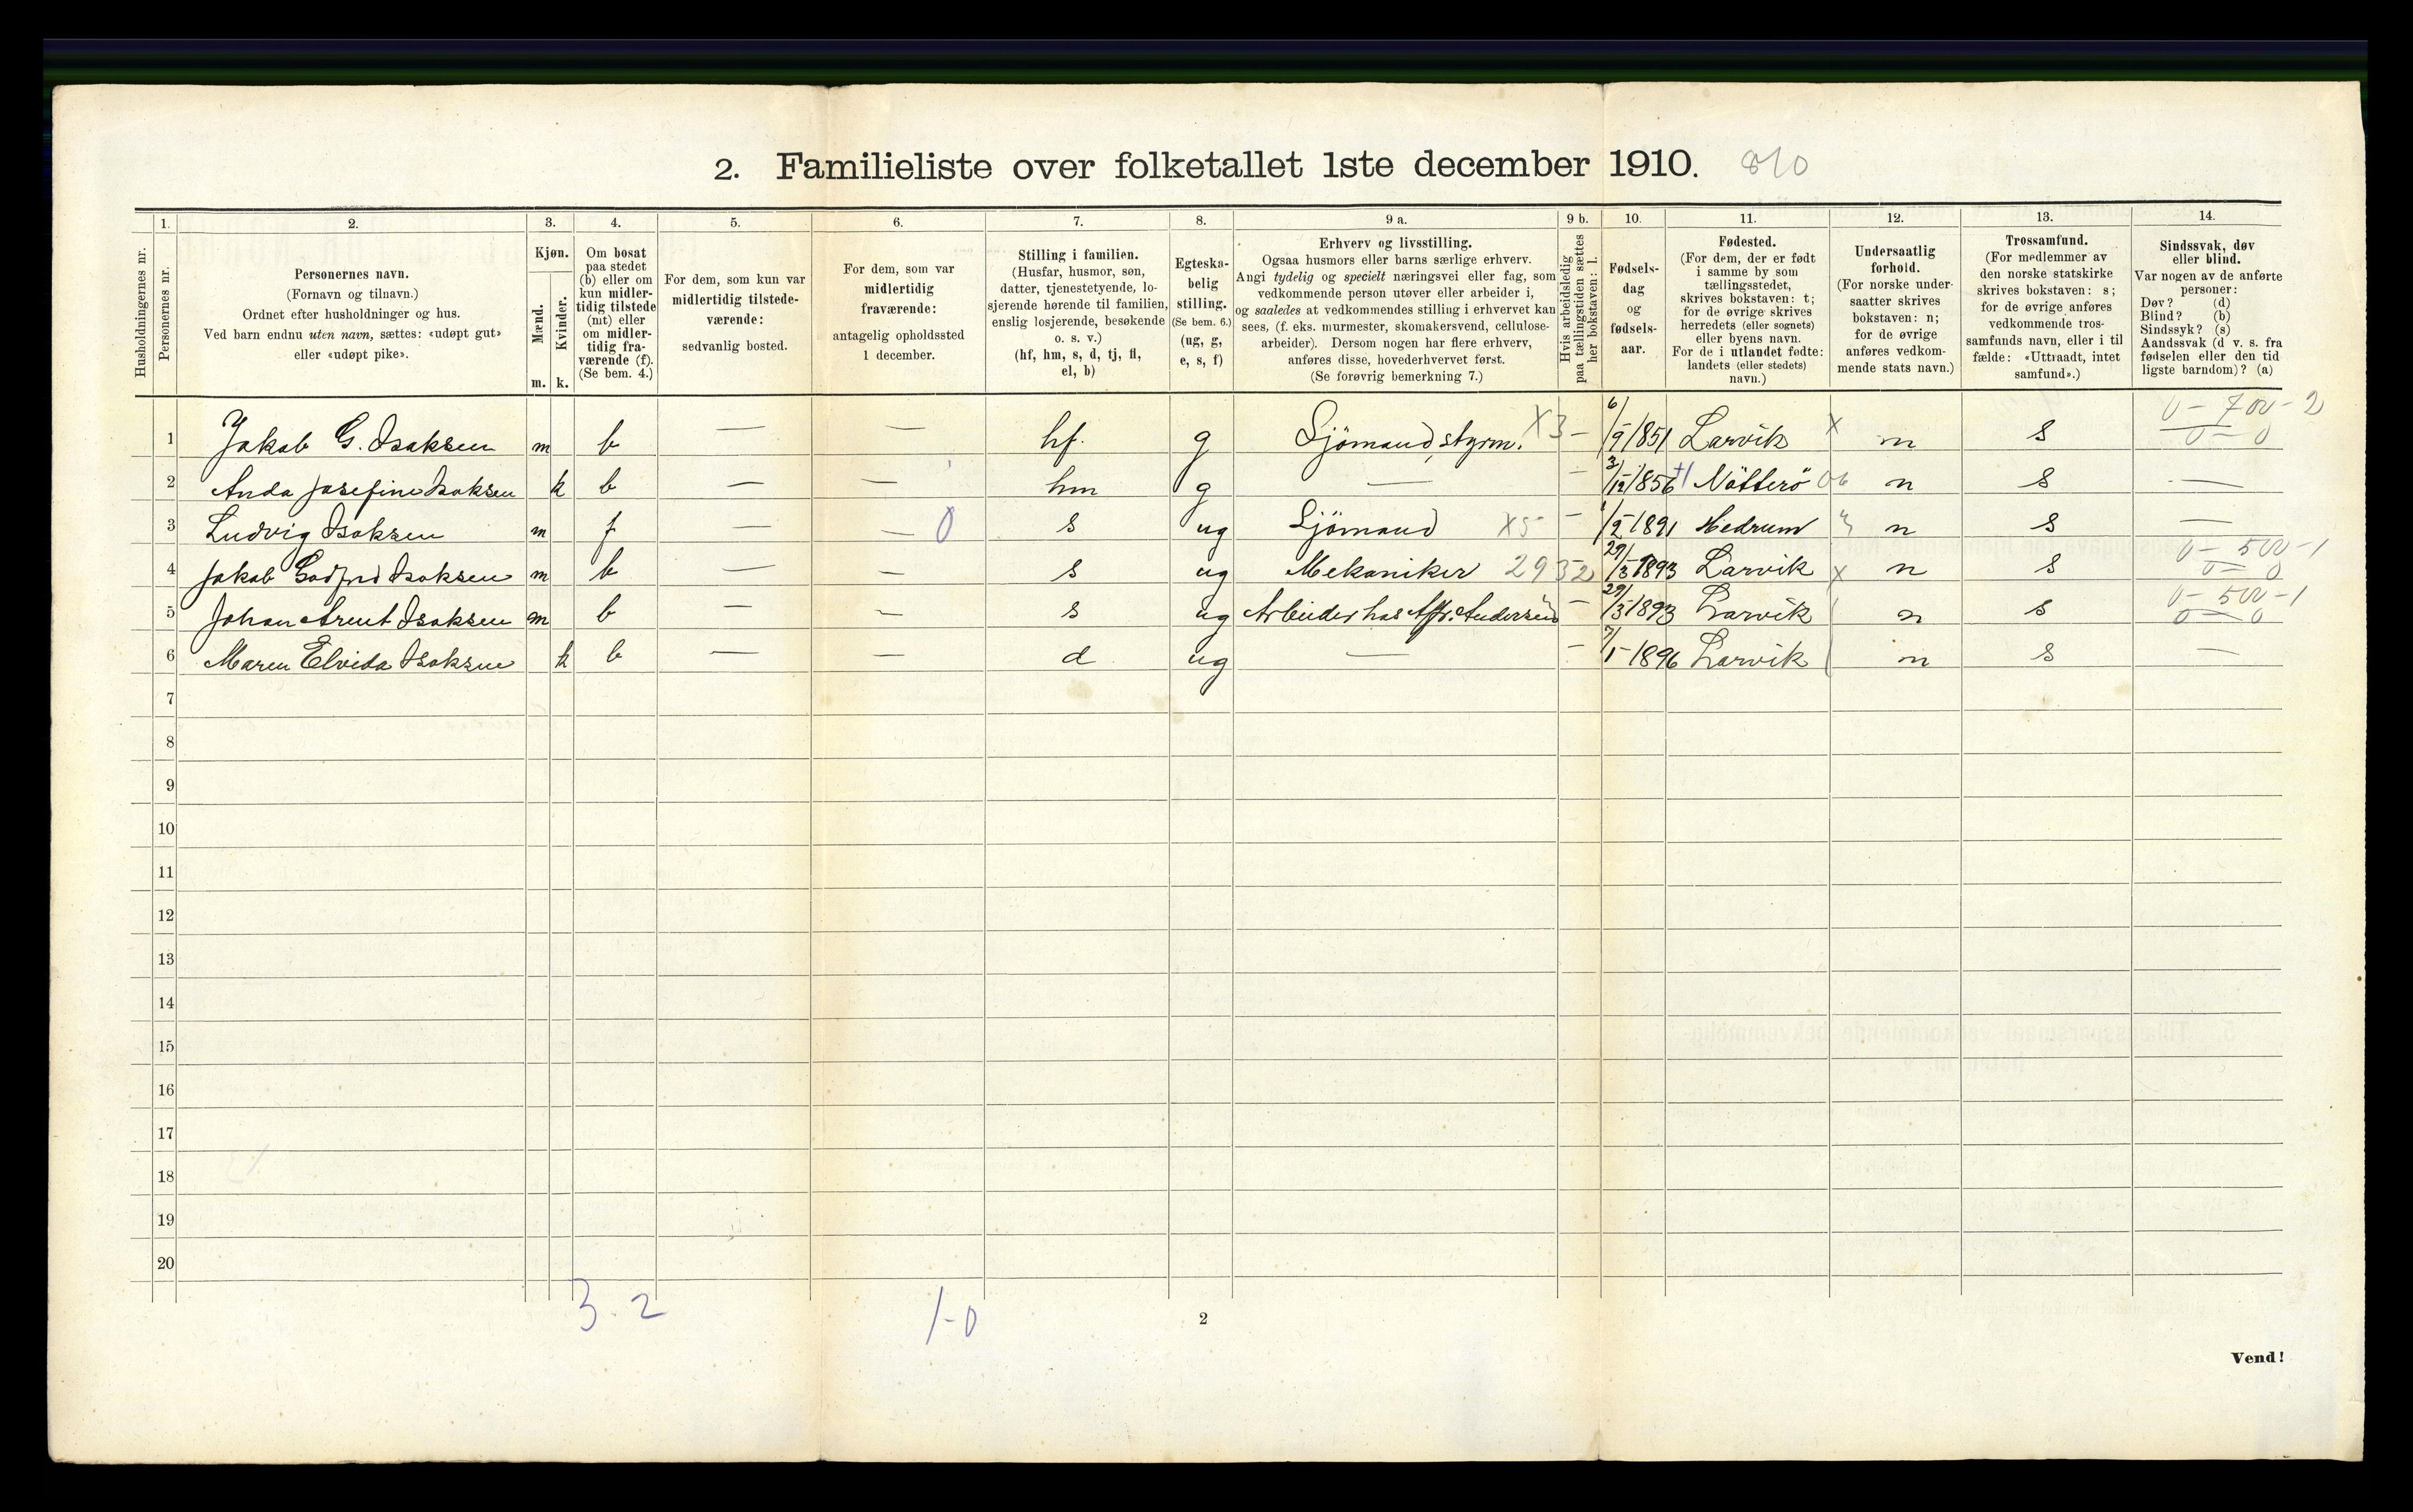 2. Familieliste over folketallet 1ste december 1910. 810
Husholdningernes nr.
1. Personernes nr.
2. Personernes navn.
(Fornavn og tilnavn.)
Ordnet efter husholdninger og hus.
Ved barn endnu uten navn, sættes: «udøpt gut»
eller «udøpt pike».
3. Kjøn.
Mænd. m.
Kvinder. k.
4. Om bosat
paa stedet
(b) eller om
kun midler-
tidig tilstede
(mt) eller
om midler-
tidig fra-
værende (f).
(Se bem. 4.)
5. For dem, som kun var
midlertidig tilstede-
værende:
sedvanlig bosted.
6. For dem, som var
midlertidig
fraværende:
antagelig opholdssted
1 december.
7. Stilling i familien.
(Husfar, husmor, søn,
datter, tjenestetyende, lo-
sjerende hørende til familien,
enslig losjerende, besøkende
o. s. v.)
(hf, hm, s, d, tj, fl,
el, b)
8. Egteska-
belig
stilling.
(Se bem. 6.)
(ug, g,
e, s, f)
9 a. Erhverv og livsstilling.
Ogsaa husmors eller barns særlige erhverv.
Angi tydelig og specielt næringsvei eller fag, som
vedkommende person utøver eller arbeider i,
og saaledes at vedkommendes stilling i erhvervet kan
sees, (f. eks. murmester, skomakersvend, cellulose-
arbeider). Dersom nogen har flere erhverv,
anføres disse, hovederhvervet først.
(Se forøvrig bemerkning 7.)
9 b. Hvis arbeidsledig
paa tællingstiden sættes
her bokstaven: l.
10. Fødsels-
dag
og
fødsels-
aar.
11. Fødested.
(For dem, der er født
i samme by som
tællingsstedet,
skrives bokstaven: t;
for de øvrige skrives
herredets (eller sognets)
eller byens navn.
For de i utlandet fødte:
landets (eller stedets)
navn.)
12. Undersaatlig
forhold.
(For norske under-
saatter skrives
bokstaven: n;
for de øvrige
anføres vedkom-
mende stats navn.)
13. Trossamfund.
(For medlemmer av
den norske statskirke
skrives bokstaven: s;
for de øvrige anføres
vedkommende tros-
samfunds navn, eller i til
fælde: «Uttraadt, intet
samfund».)
14. Sindssvak, døv
eller blind.
Var nogen av de anførte
personer:
Døv? (d)
Blind? (b)
Sindssyk? (s)
Aandssvak (d v. s. fra
fødselen eller den tid
ligste barndom)? (a)
1 Jakob G. Isaksen m b — — hf. g Sjömand, styrm. X3 — 6/9 1851 Larvik X n s 0 - 700 - 2
0 — 0
2 Anda Josefine Isaksen k b — — hm g — — 3/12 1856 Nötterö 06 n s —
3 Ludvig Isaksen m f — — 0 s ug Sjömand X5 — 1/2 1891 Hedrum n s —
4 Jakob Godfred Isaksen m b — — s ug Mekaniker 2932 29/3 1893 Larvik X n s 0 - 500 - 1
0 — 0
5 Johan Arent Isaksen m b — — s ug Arbeider hos Andersen — 29/3 1893 Larvik n s 0 - 500 - 1
0 — 0
6 Maren Elvida Isaksen k b — — d ug — — 7/1 1896 Larvik n s —
7
8
9
10
11
12
13
14
15
16
17
18
19
20
3 - 2 1-0
2
Vend!